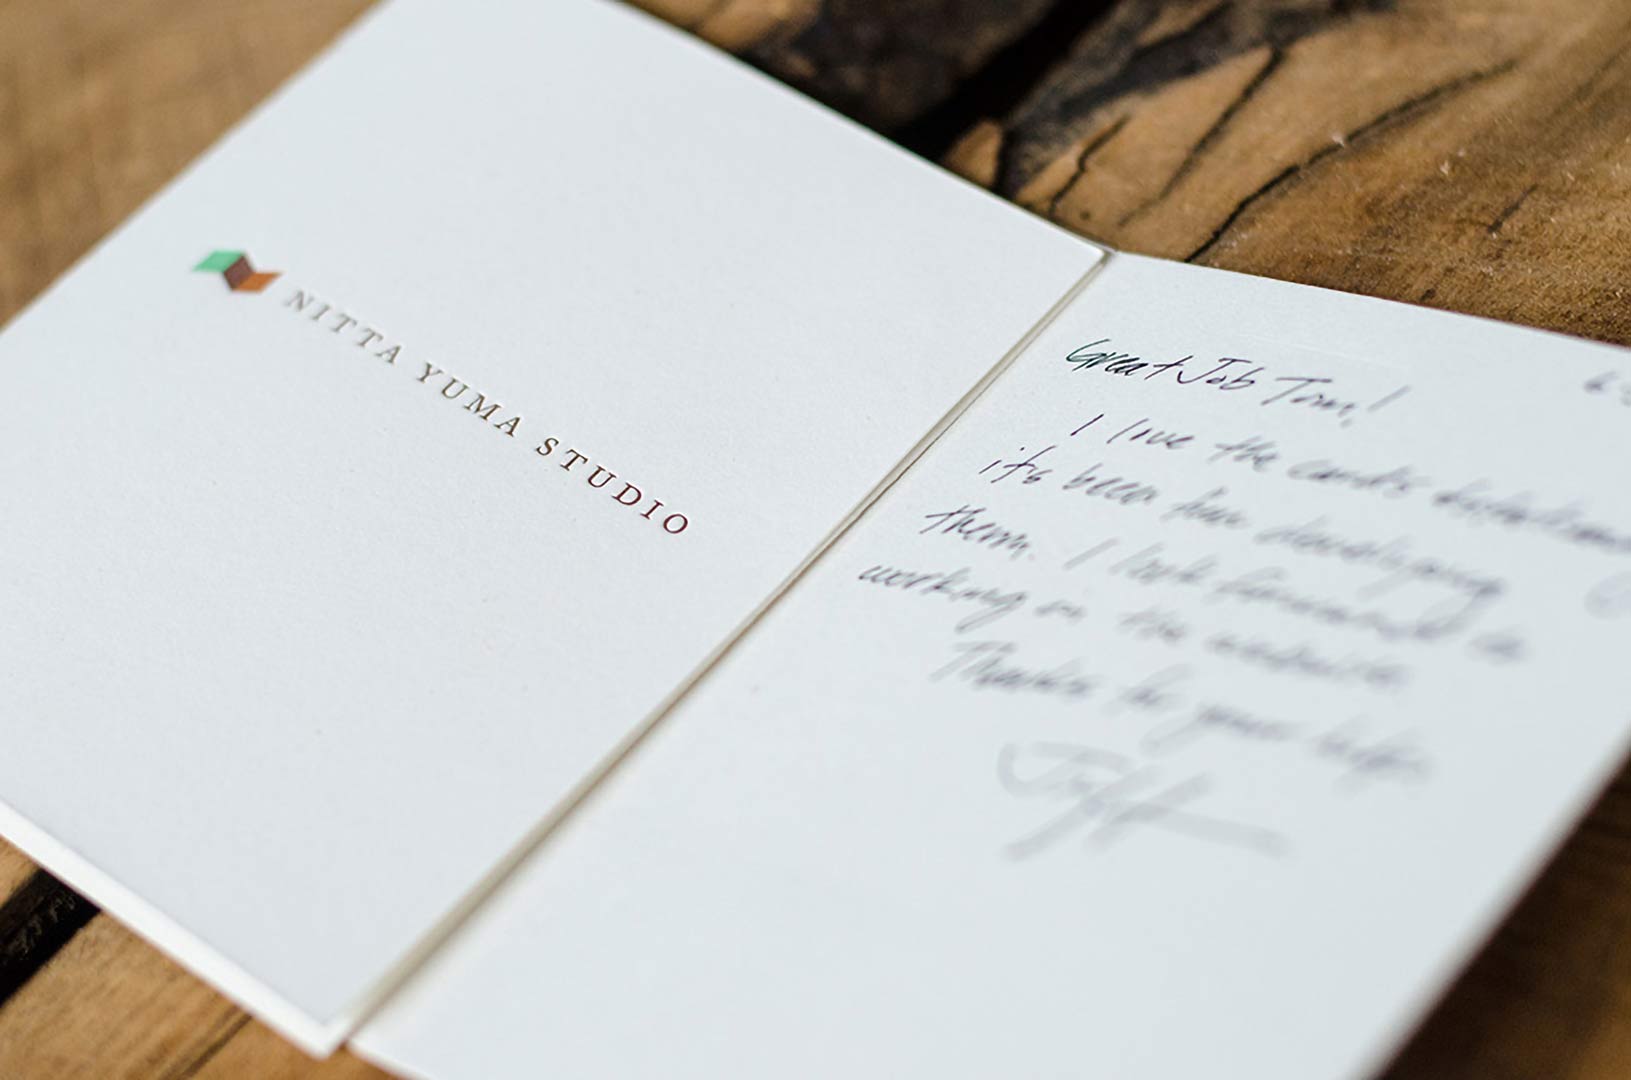 NITTA YUMA STUDIO
Great Job Tom!
I love the cards
it's been fun developing
them. I look forward to
working on the website.
Thanks for your help.